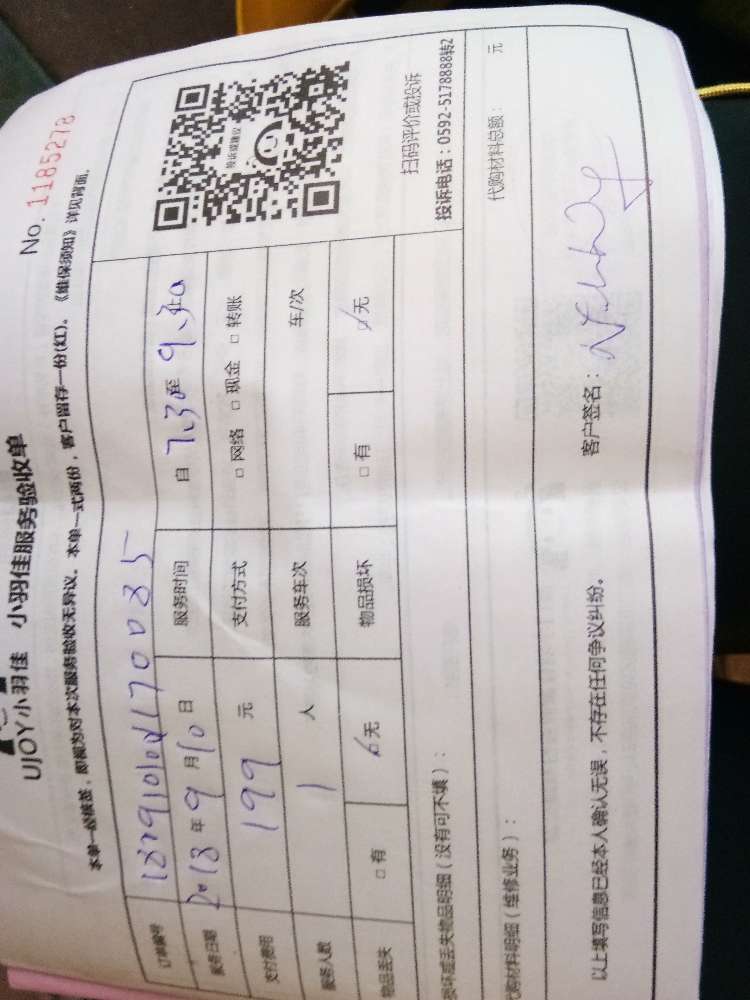 No. 1185278
UJOY小羽佳 小羽佳服务验收单
本单一经核签，即视为对本次服务验收无异议。本单一式两份，客户留存一份(红)。《维保须知》详见背面。
订单编号
服务日期 2018年9月10日 服务时间 自7.30至9.30
支付费用 199元 支付方式 □网络 □现金 □转账
服务人数 1人 服务车次 车/次
物品丢失 □有 □无 物品损坏 □有 □无
投诉或建议
扫码评价或投诉
投诉电话：0592-5178888转2
损坏或丢失物品明细（没有可不填）：
代购材料明细（维修业务）： 代购材料总额： 元
以上填写信息已经本人确认无误，不存在任何争议纠纷。 客户签名：